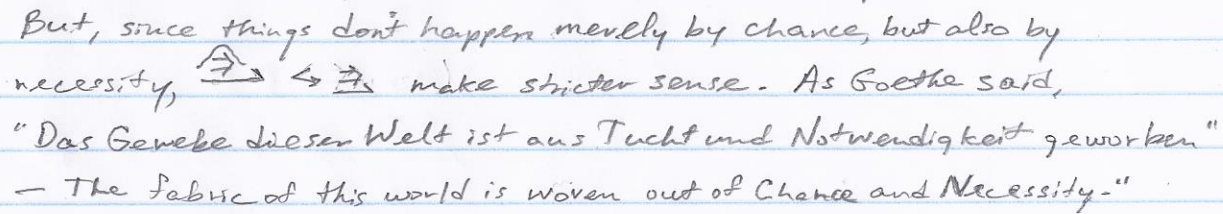 But, since things don't happen merely by chance, but also by
necessity, make stricter sense. As Goethe said,
"Das Gewebe dieser Welt ist aus Tucht und Notwendigkeit geworben"
— The fabric of this world is woven out of Chance and Necessity-"